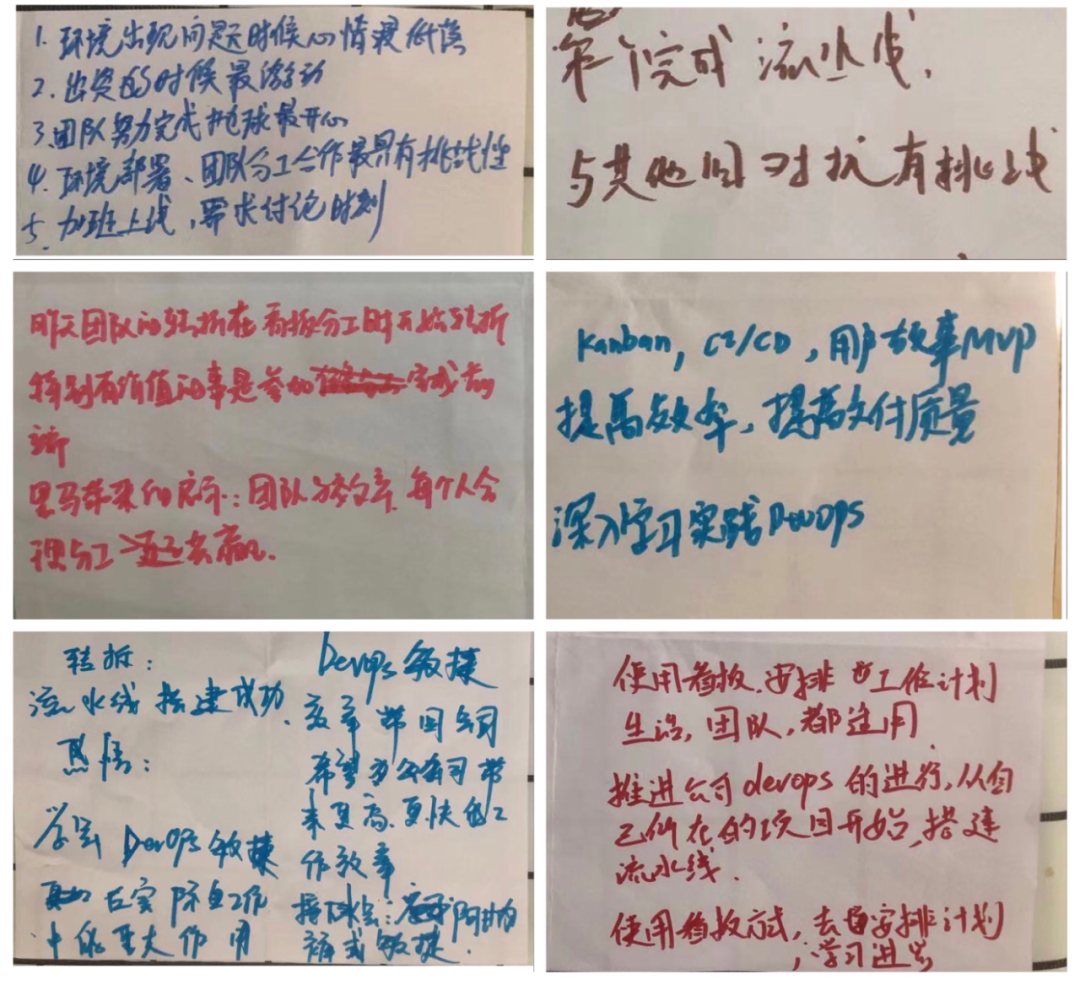 1. 环境出现问题时候心情最低落
2. 出资的时候最激动
3. 团队努力完成抛球最开心
4. 环境部署、团队分工合作最具有挑战性
5. 加班上线,需求讨论时刻
第一个完成 流水线.
与其他团对抗有挑战
昨天团队的转折在看板分工时开始转折
特别有价值的事是参加 完成
团队 效率 每个人合
理分工
Kanban, CI/CD, 用户故事MVP
提高效率, 提高交付质量
深入学习实践DevOps
转折:
流水线 搭建成功.
学到 DevOps 敏捷
在实际工作
中能重大作用
Devops 敏捷
变革 带回公司
希望为公司带
来更高、更快的工
作效率
敏捷.
使用看板.安排 工作计划
生活, 团队, 都适用.
推进公司 devops 的进行,从自
己所在的项目开始,搭建
流水线.
使用看板方式, 去安排计划
,学习进步